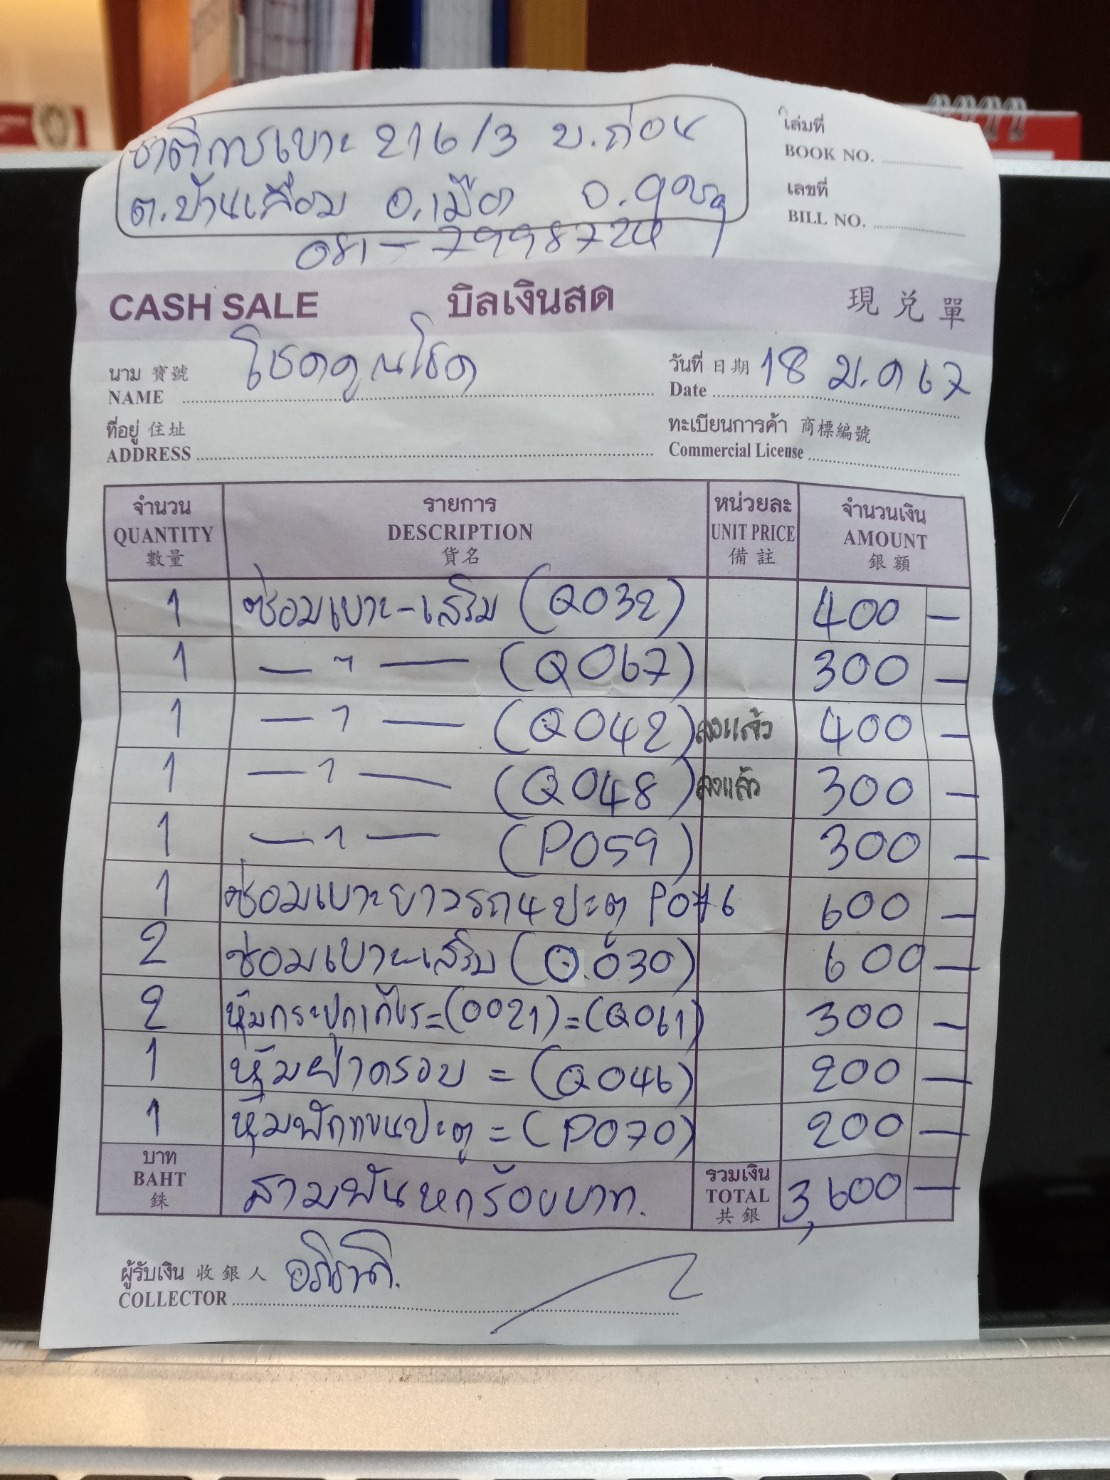 ชาติการเบาะ 216/3 บ.ถ่อน
ต.บ้านเลื่อม อ.เมือง จ.อุดรฯ
081-7998724
เล่มที่
BOOK NO.
เลขที่
BILL NO.
CASH SALE บิลเงินสด 現兌單
นาม 寶號 NAME โชคคูณโชค
วันที่ 日期 Date 18 ม.ค 67
ที่อยู่ 住址
ADDRESS
ทะเบียนการค้า 商標編號
Commercial License
จำนวน รายการ หน่วยละ จำนวนเงิน
QUANTITY DESCRIPTION UNIT PRICE AMOUNT
數量 貨名 備註 銀額
1 ซ่อมเบาะ-เสริม (Q032) 400 -
1 — " — (Q067) 300 -
1 — " — (Q042) ลงแล้ว 400 -
1 — " — (Q048) ลงแล้ว 300 -
1 — " — (P059) 300 -
1 ซ่อมเบาะยาวรถ4ปะตู 600 -
2 ซ่อมเบาะ-เสริม (Q.030) 600 -
2 หุ้มกระปุกเกียร์=(0021)=(Q061) 300 -
1 หุ้มฝาครอบ = (Q046) 200 -
1 หุ้มพักแขนปะตู = (P070) 200 -
บาท
BAHT
銖
สามพันหกร้อยบาท.
รวมเงิน
TOTAL
共銀
3,600 -
ผู้รับเงิน 收銀人
COLLECTOR